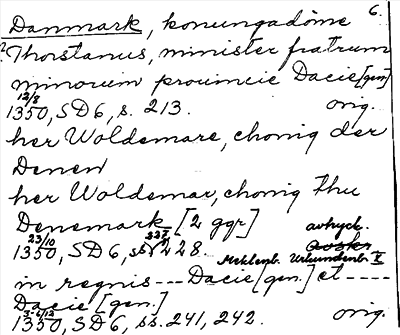 Danmark, konungadöme 6.
? Thorstanus, minister fratrum
minorum prouincie Dacie [gen]
12/8
1350, SD6, s. 213. orig.
her Woldemare, chonig der
Denen
her Woldemar, chonig thu
Denemark [2 ggr] avtryck.
23/10
1350, SD6, 228. Meklenb. Urkundenb. X
in regnis --- Dacie [gen.] et ----
Dacie [gen.]
3-6/12
1350, SD6, ss. 241, 242. orig.